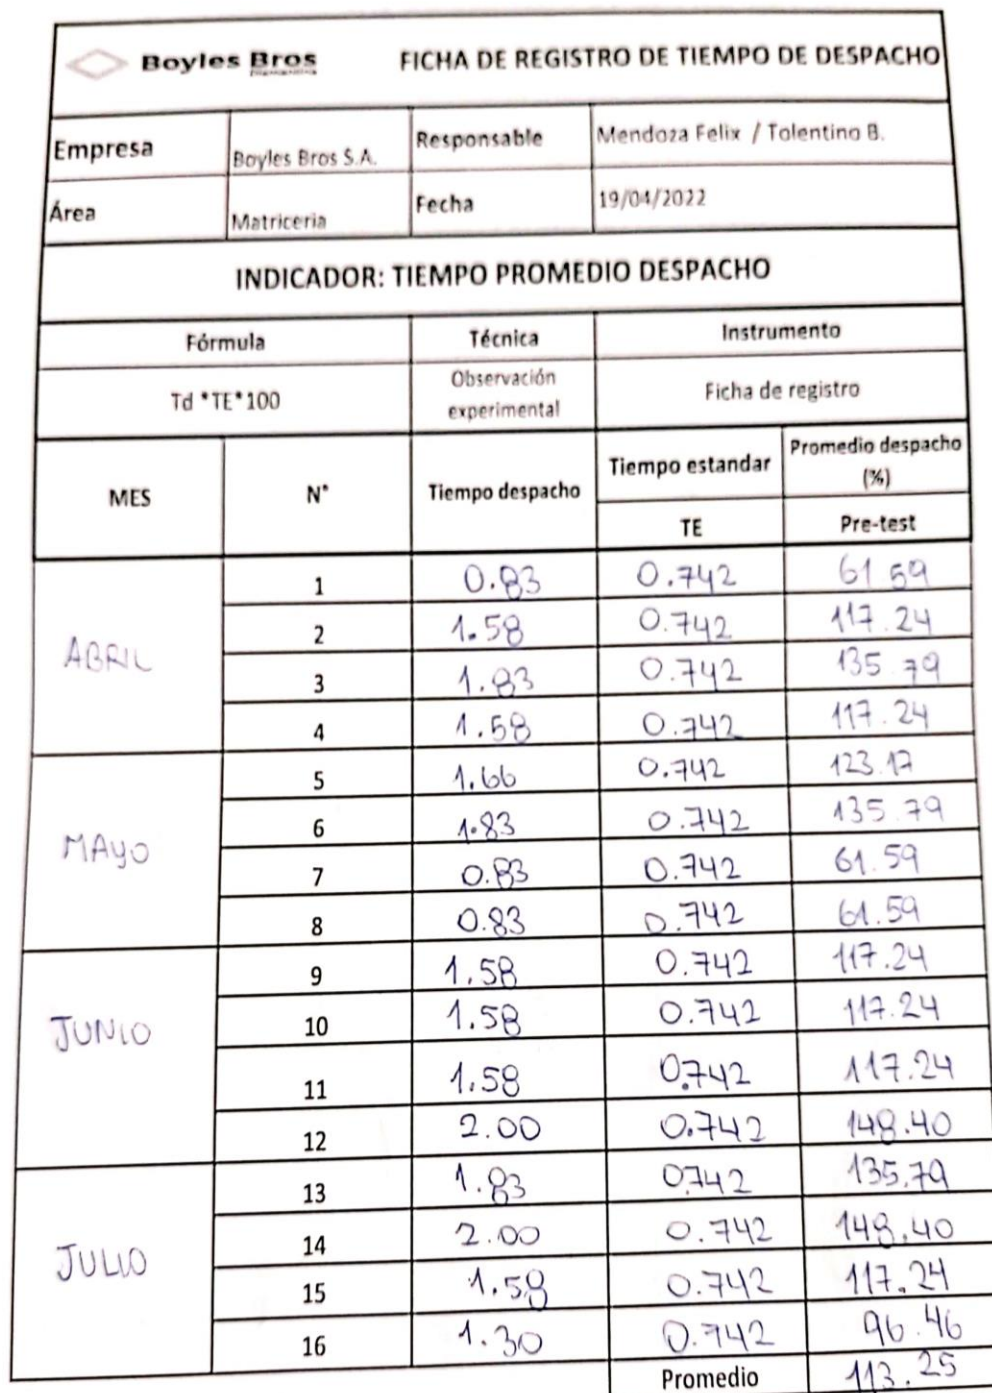 Boyles Bros FICHA DE REGISTRO DE TIEMPO DE DESPACHO
Empresa Boyles Bros S.A. Responsable Mendoza Felix / Tolentino B.
Área Matriceria Fecha 19/04/2022
INDICADOR: TIEMPO PROMEDIO DESPACHO
Fórmula Técnica Instrumento
Td *TE*100 Observación experimental Ficha de registro
MES N° Tiempo despacho Tiempo estandar Promedio despacho (%)
TE Pre-test
ABRIL
1 0.83 0.742 61 59
2 1.58 0.742 117.24
3 1.83 0.742 135.79
4 1.58 0.742 117.24
MAYO
5 1.66 0.742 123.17
6 1.83 0.742 135.79
7 0.83 0.742 61.59
8 0.83 0.742 61.59
JUNIO
9 1.58 0.742 117.24
10 1.58 0.742 117.24
11 1.58 0.742 117.24
12 2.00 0.742 148.40
JULIO
13 1.83 0742 135.79
14 2.00 0.742 148.40
15 1.58 0.742 117.24
16 1.30 0.742 96.46
Promedio 113.25